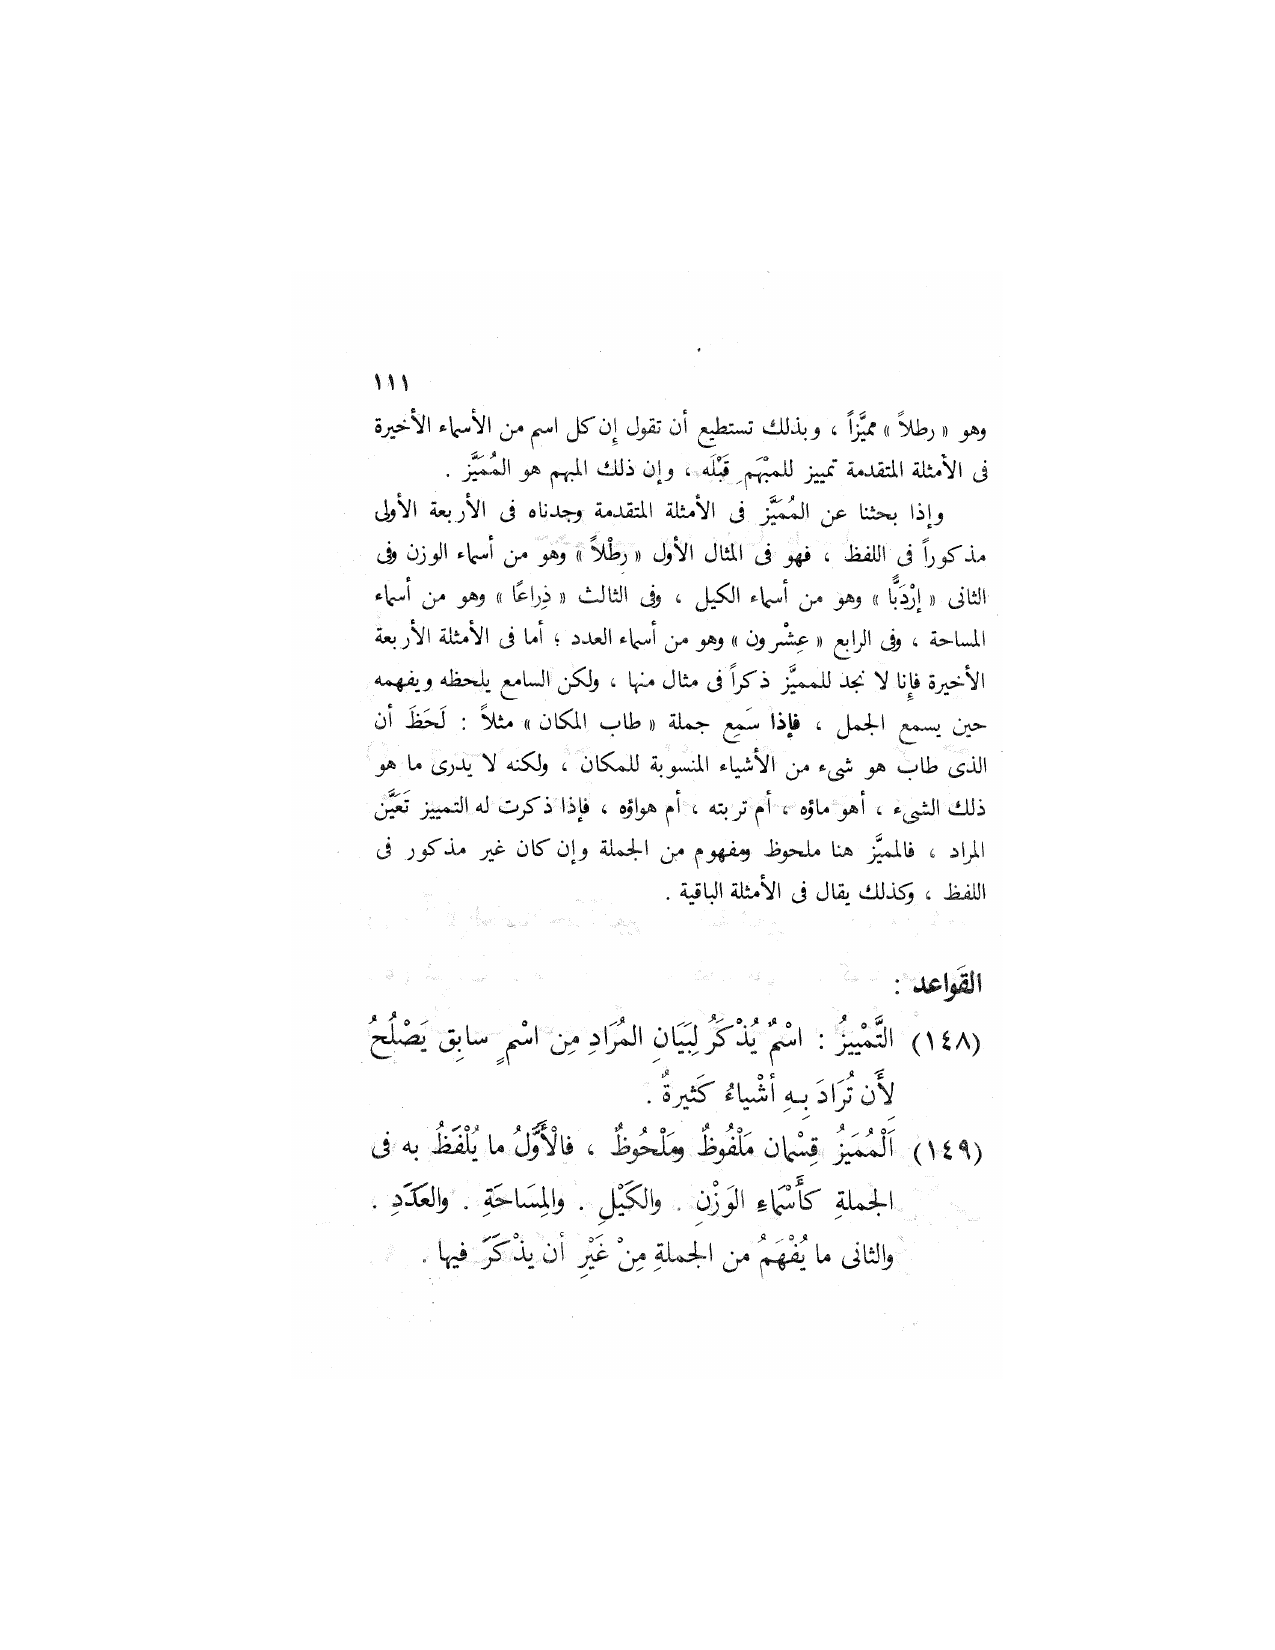 ١١١
وهو « رطلاً » مميَّزاً ، وبذلك تستطيع أن تقول إن كل اسم من الأسماء الأخيرة
فى الأمثلة المتقدمة تمييز للمبْهَم قَبْلَه ، وإن ذلك المبهم هو المُمَيَّز .
وإذا بحثنا عن المُمَيَّز فى الأمثلة المتقدمة وجدناه فى الأربعة الأولى
مذكوراً فى اللفظ ، فهو فى المثال الأول « رطْلاً » وهو من أسماء الوزن وفى
الثانى « إرْدَبًّا » وهو من أسماء الكيل ، وفى الثالث « ذِراعًا » وهو من أسماء
المساحة ، وفى الرابع « عِشْرون » وهو من أسماء العدد ؛ أما فى الأمثلة الأربعة
الأخيرة فإنا لا نجد للمميَّز ذكراً فى مثال منها ، ولكن السامع يلحظه ويفهمه
حين يسمع الجمل ، فإذا سَمِع جملة « طاب المكان » مثلاً : لَحَظَ أن
الذى طاب هو شىء من الأشياء المنسوبة للمكان ، ولكنه لا يدرى ما هو
ذلك الشىء ، أهو ماؤه ، أم تربته ، أم هواؤه ، فإذا ذكرت له التمييز تَعَيَّن
المراد ، فالمميَّز هنا ملحوظ ومفهوم من الجملة وإن كان غير مذكور فى
اللفظ ، وكذلك يقال فى الأمثلة الباقية .
القَواعد :
(١٤٨) التَّمْيِيزُ : اسْمٌ يُذْكَرُ لِبَيَانِ المُرَادِ مِن اسْمٍ سابِق يَصْلُحُ
لأَن تُرَادَ بِهِ أَشْياءُ كَثيرةٌ .
(١٤٩) اَلْمُمَيَزُ قِسْمان مَلْفُوظٌ ومَلْحُوظٌ ، فالأَوَّلُ ما يُلْفَظُ به فى
الجملةِ كأَسْماءِ الوَزْنِ . والكَيْلِ . والمِسَاحَةِ . والعَدَدِ .
والثانى ما يُفْهَمُ من الجملةِ مِنْ غَيْرِ أن يذْكَرَ فيها .